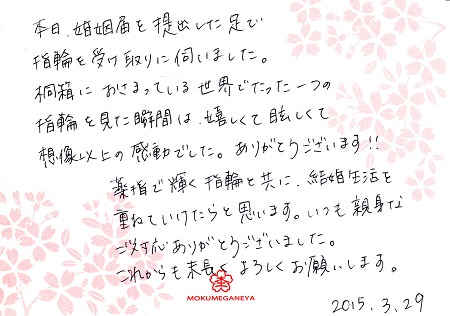 本日、婚姻届を提出した足で
指輪を受け取りに伺いました。
桐箱におさまっている世界でたった一つの
指輪を見た瞬間は、嬉しくて眩しくて
想像以上の感動でした。ありがとうございます!!
薬指で輝く指輪と共に、結婚生活を
重ねていけたらと思います。いつも親身な
ご対応ありがとうございました。
これからも末長くよろしくお願いします。
MOKUMEGANEYA
2015.3.29